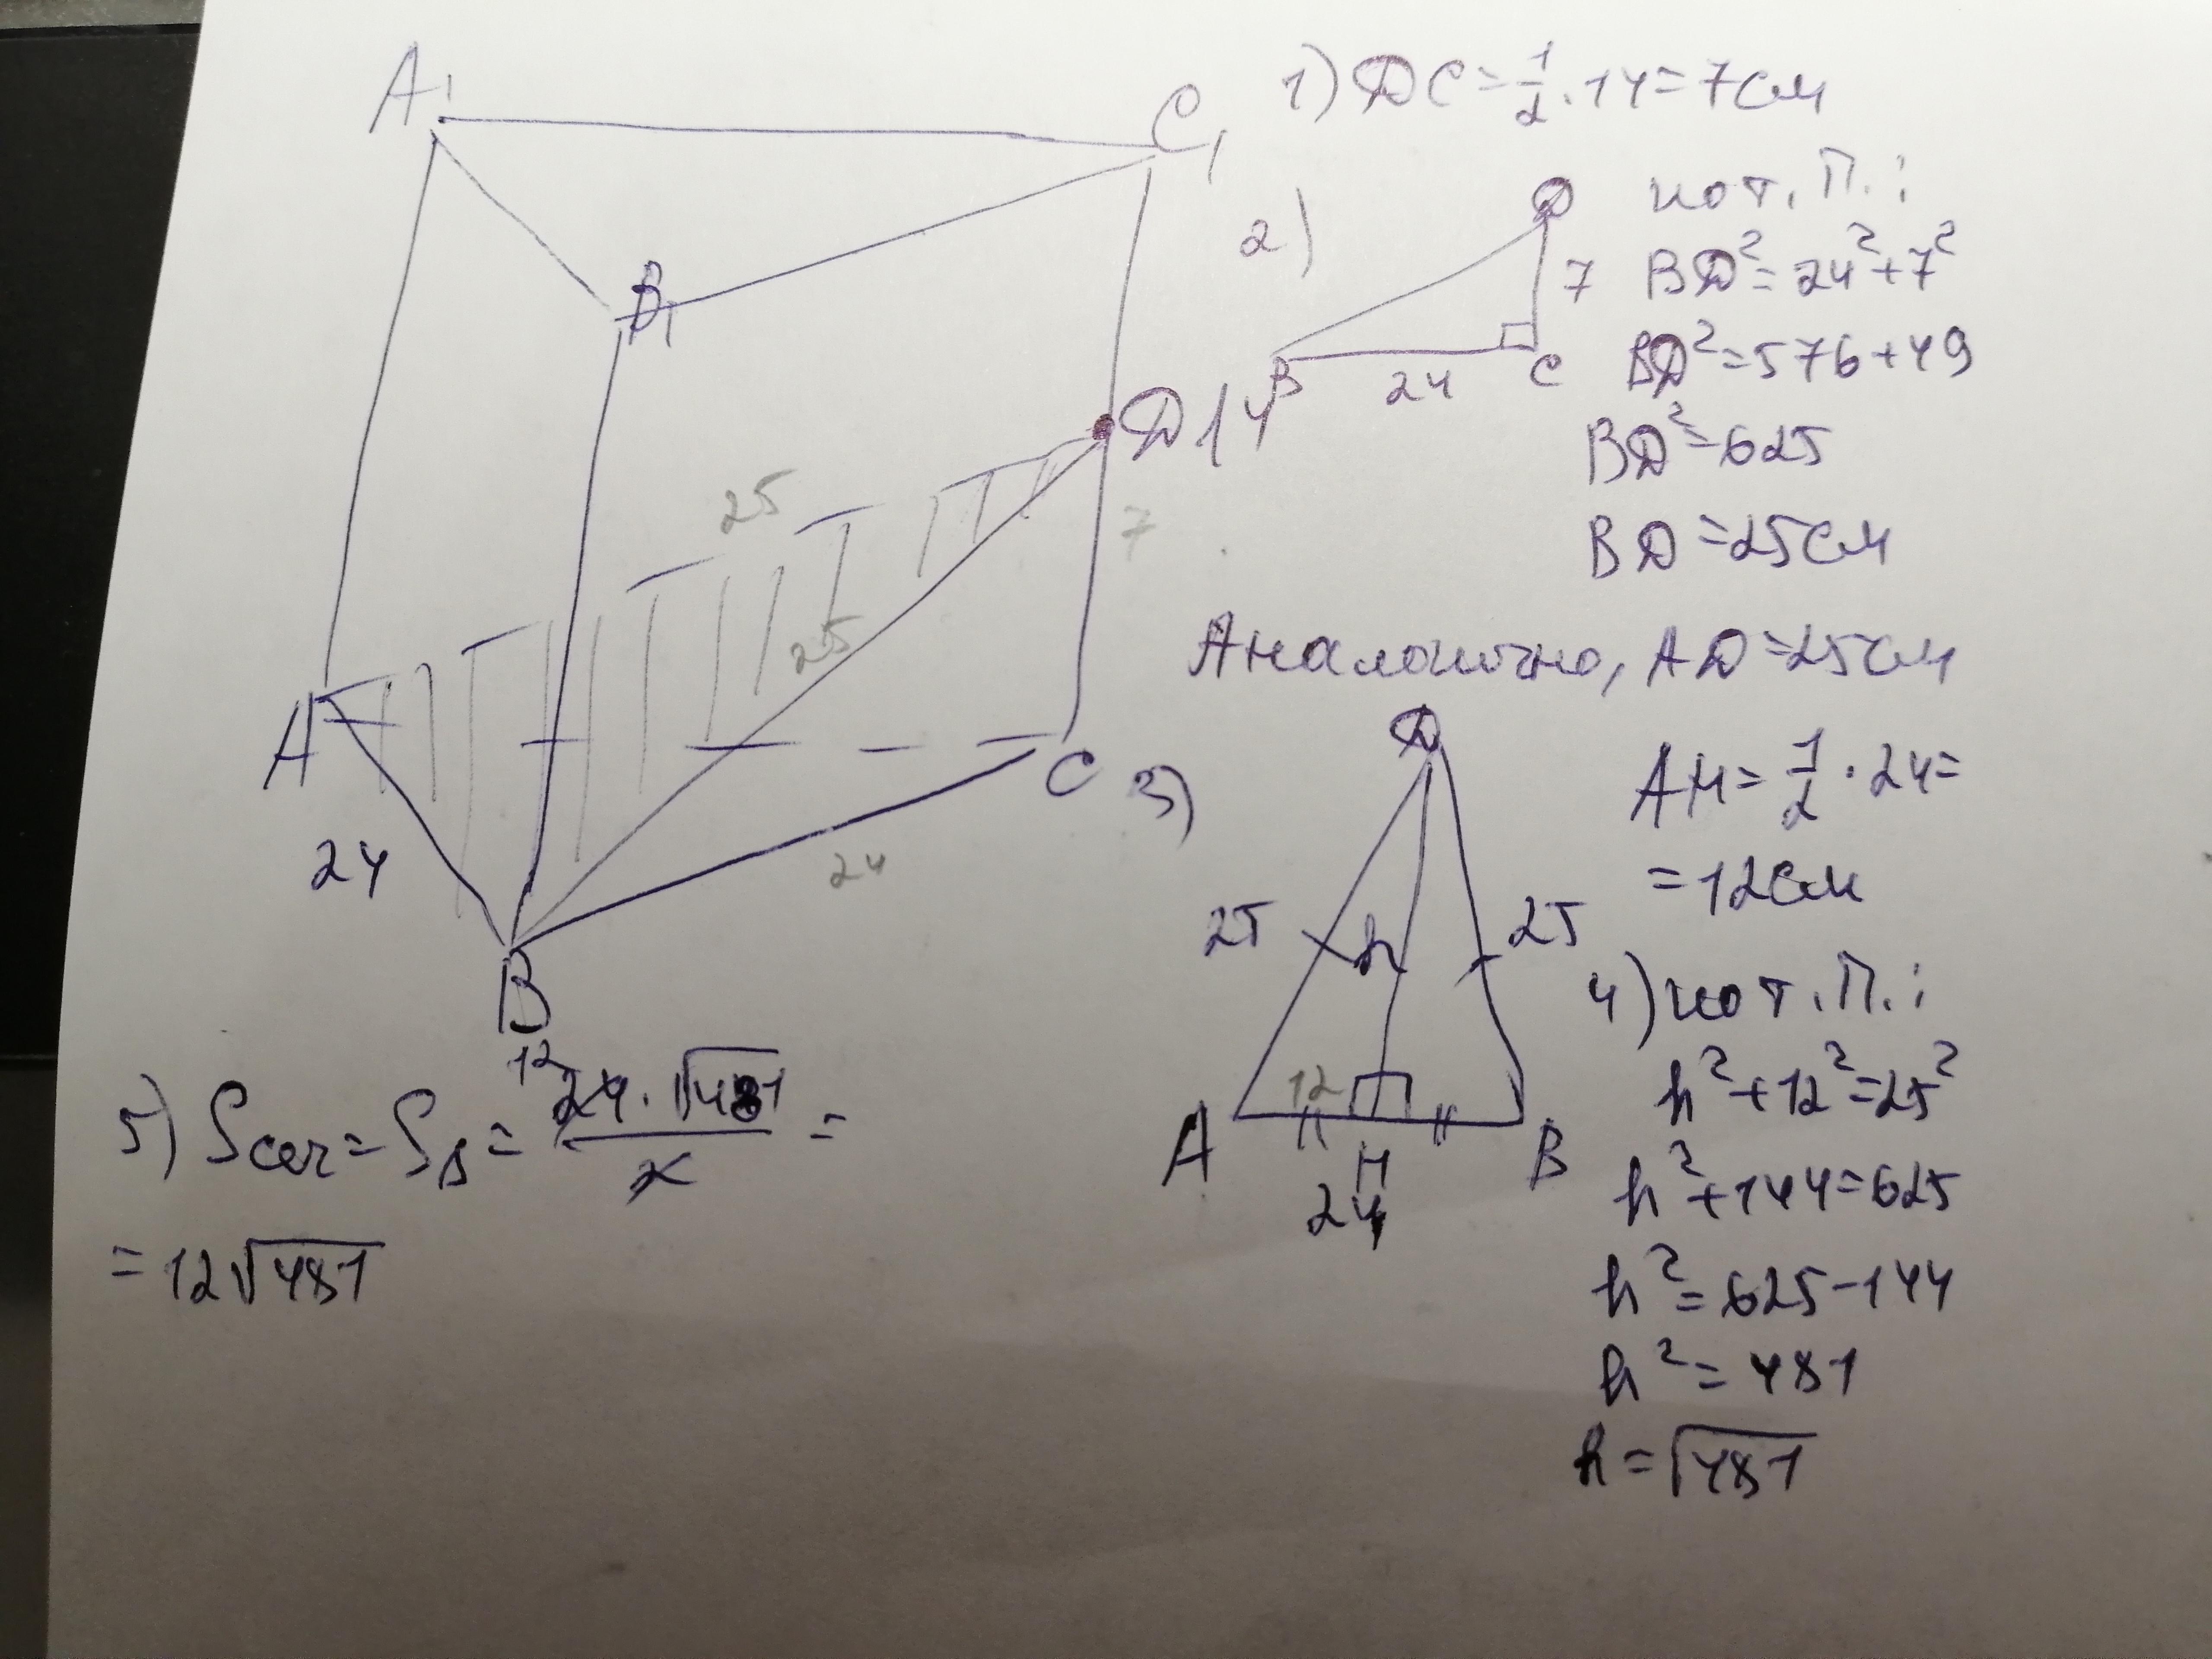 A₁
C₁
B₁
D 14
25
7
25
A
C
24
24
B
1) DC = 1/2 · 14 = 7 см
2)
D
7
B 24 C
по т. П.:
BD² = 24² + 7²
BD² = 576 + 49
BD² = 625
BD = 25 см
Аналогично, AD = 25 см
3)
D
25 h 25
12
A H B
24
AH = 1/2 · 24 =
= 12 см
4) по т. П.:
h² + 12² = 25²
h² + 144 = 625
h² = 625 - 144
h² = 481
h = √481
5) Sсеч = S△ = 12 24 · √481 / 2 =
= 12√481